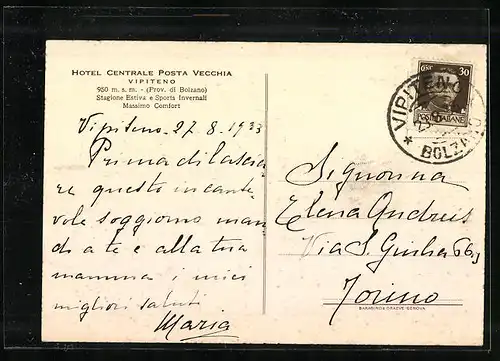 HOTEL CENTRALE POSTA VECCHIA
VIPITENO
950 m. s. m. - (Prov. di Bolzano)
Stagione Estiva e Sports Invernali
Massimo Comfort
Vipiteno 27.8.1933
Prima di lascia
re questo incante
vole soggiorno man
do a te e alla tua
mamma i miei
migliori saluti
Maria
30
POSTE ITALIANE
VIPITENO
* BOLZANO
Signorina
Elena Andreis
Via S. Giulia 66
Torino